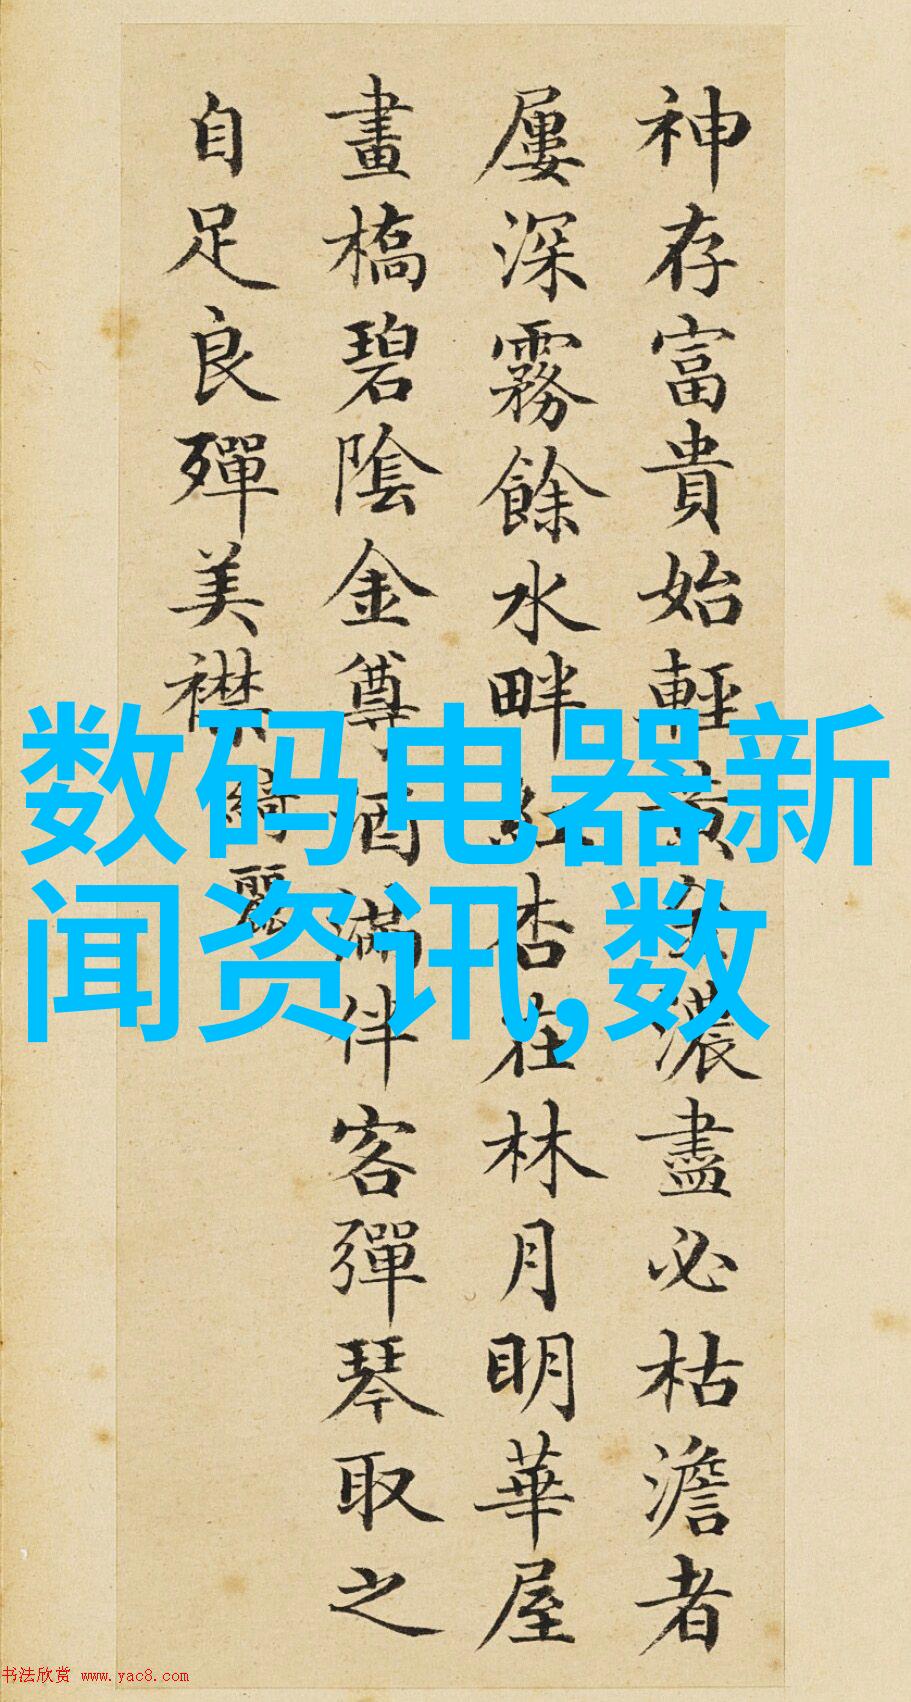 神存富貴始輕黃金濃盡必枯澹者
屢深霧餘水畔紅杏在林月明華屋
畫橋碧陰金尊酒滿伴客彈琴取之
自足良殫美襟
綺麗
数码电器新
闻资讯,数
书法欣赏 www.yac8.com